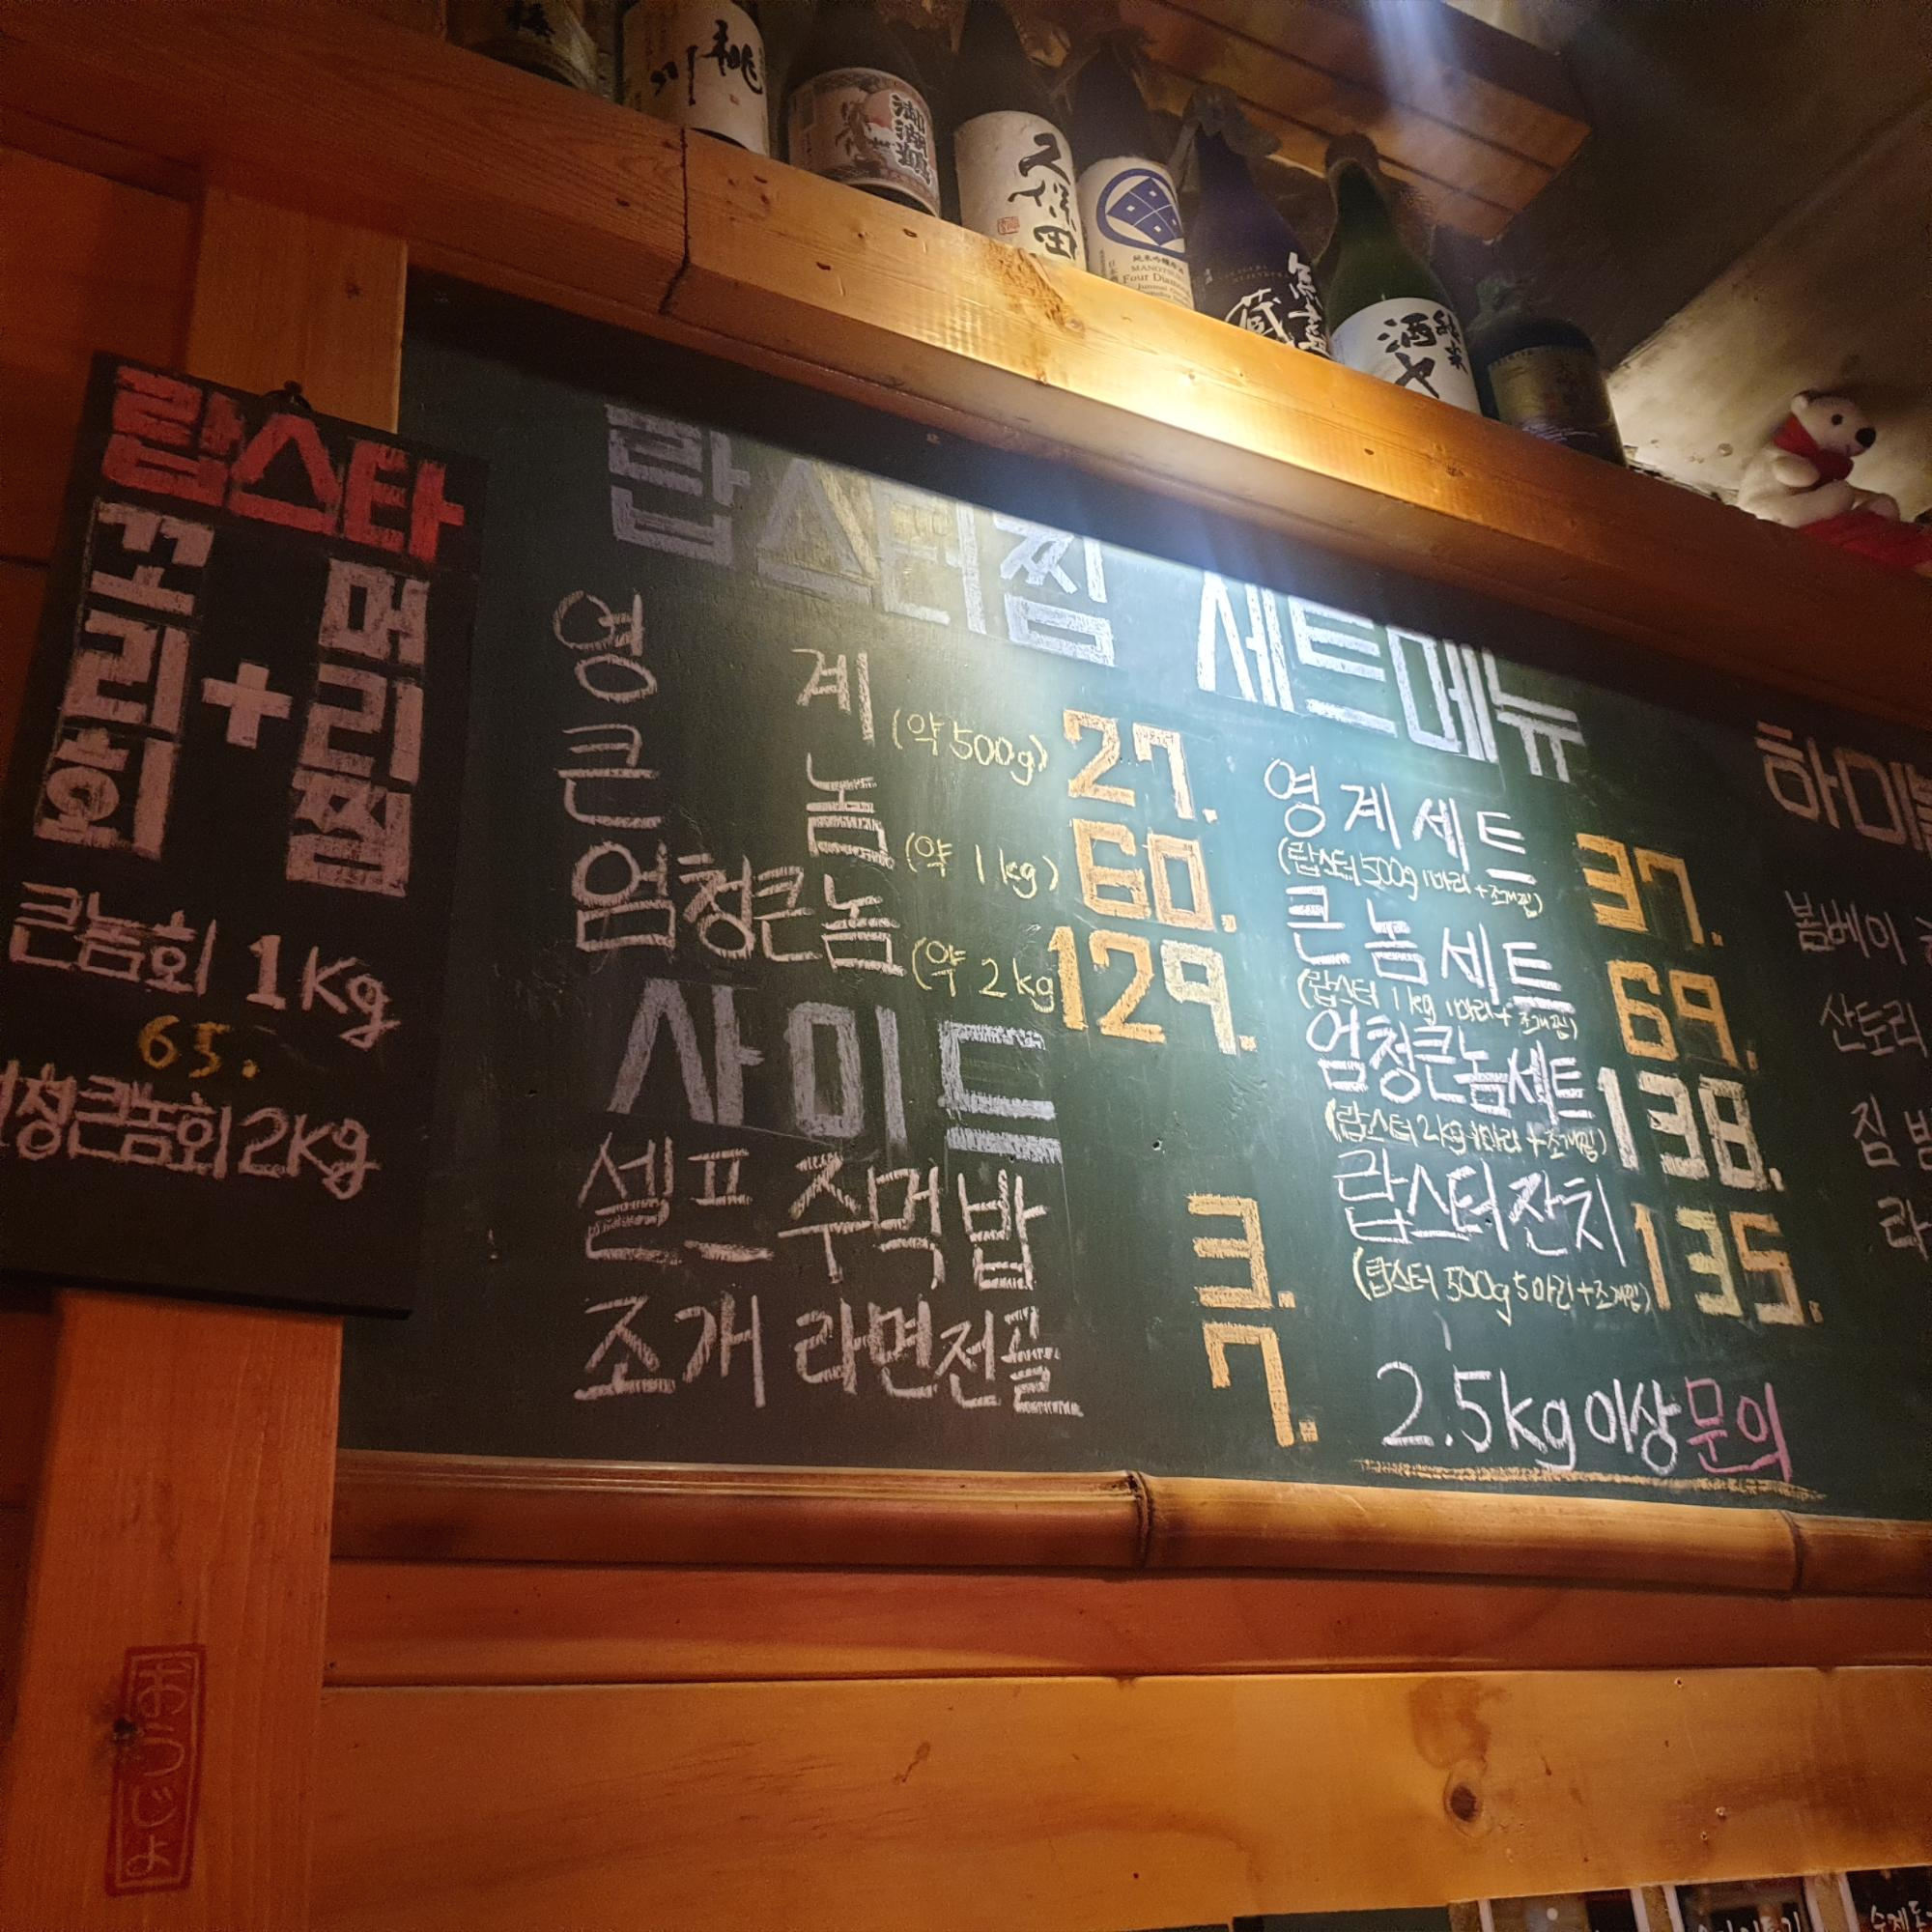 桃川
久保田
MANOTSURU
Four Diamonds
純米
酒
랍스타
꼬리회 + 머리찜
큰놈회 1Kg
65.
청큰놈회 2Kg
랍스터찜
영계 (약 500g) 27.
큰놈 (약 1kg) 60.
엄청큰놈 (약 2kg 129.
사이드
셀프 주먹밥 3.
조개 라면전골 7.
세트메뉴
영계세트 37.
(랍스터 500g 1마리+조개찜)
큰놈세트 69.
(랍스터 1kg 1마리+조개찜)
엄청큰놈세트 138.
(랍스터 2kg 1마리+조개찜)
랍스터잔치 135.
(랍스터 500g 5마리+조개찜)
2.5kg 이상 문의
봄베이
산토리
짐
おうじょ